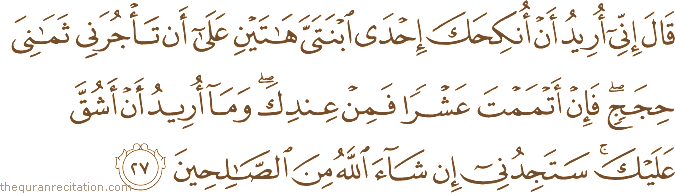 قَالَ إِنِّىٓ أُرِيدُ أَنْ أُنكِحَكَ إِحْدَى ٱبْنَتَىَّ هَـٰتَيْنِ عَلَىٰٓ أَن تَأْجُرَنِى ثَمَـٰنِىَ
حِجَجٍ ۖ فَإِنْ أَتْمَمْتَ عَشْرًا فَمِنْ عِندِكَ ۖ وَمَآ أُرِيدُ أَنْ أَشُقَّ
عَلَيْكَ ۚ سَتَجِدُنِىٓ إِن شَآءَ ٱللَّهُ مِنَ ٱلصَّـٰلِحِينَ ٢٧
thequranrecitation.com